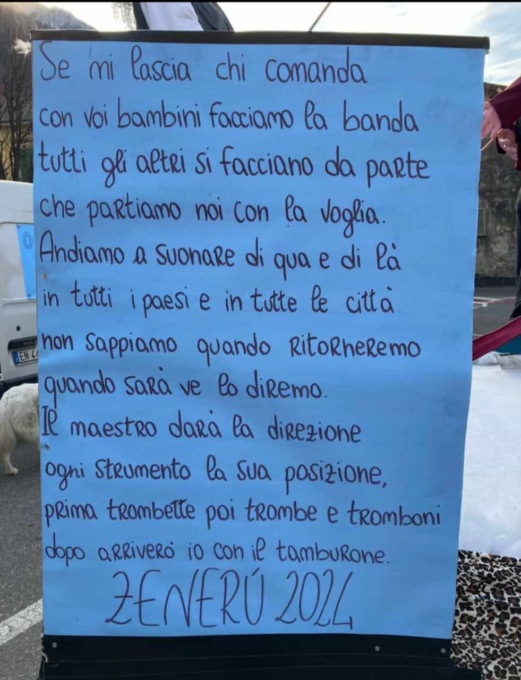 Se mi lascia chi comanda
con voi bambini facciamo la banda
tutti gli altri si facciano da parte
che partiamo noi con la voglia.
Andiamo a suonare di qua e di là
in tutti i paesi e in tutte le città
non sappiamo quando ritorneremo
quando sarà ve lo diremo.
Il maestro darà la direzione
ogni strumento la sua posizione,
prima trombette poi trombe e tromboni
dopo arriverò io con il tamburone.
ZENERÚ 2024